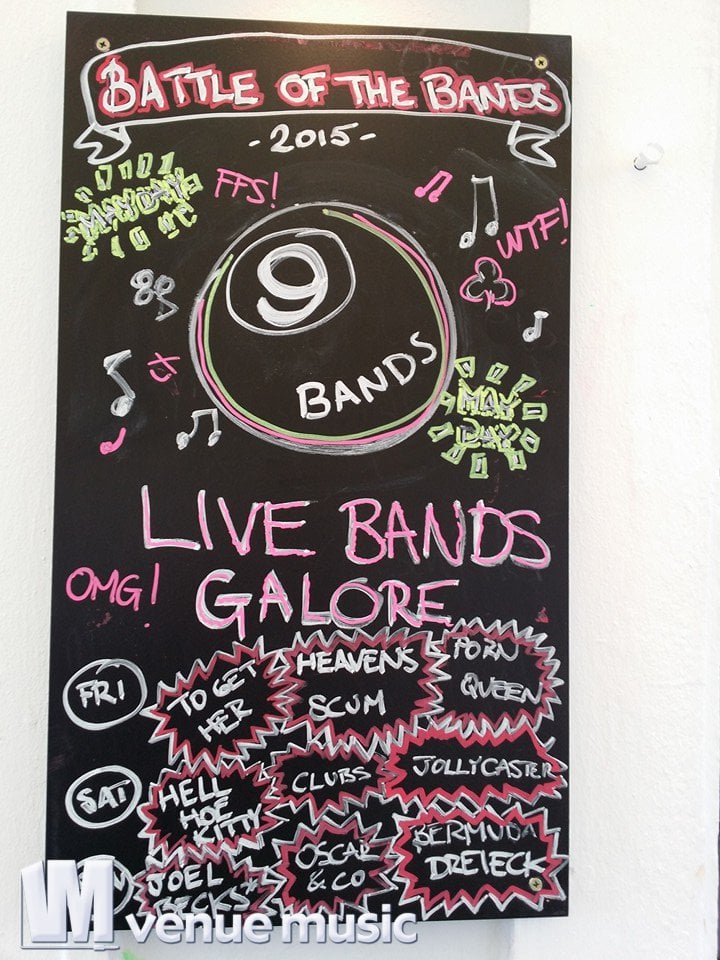 BATTLE OF THE BANDS
-2015-
MAYDAY
FFS!
WTF!
9
BANDS
MAY
DAY
LIVE BANDS
OMG!
GALORE
FRI
TO GET
HER
HEAVENS
SCUM
PORN
QUEEN
SAT
HELL
HOE
KITTY
CLUBS
JOLLYCASTER
JOEL
BECKS
OSCAR
& CO
BERMUDA
DREIECK
venue music